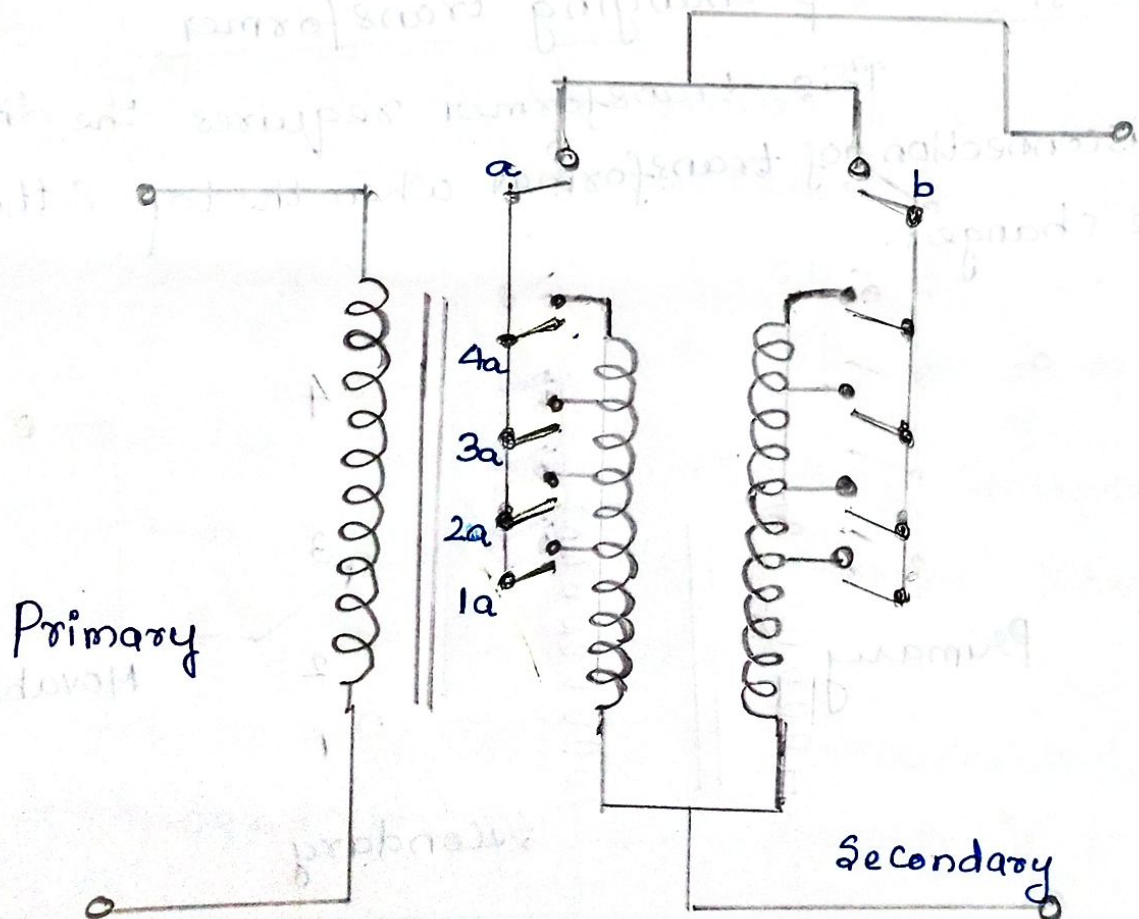 a
b
4a
3a
2a
1a
Primary
Secondary